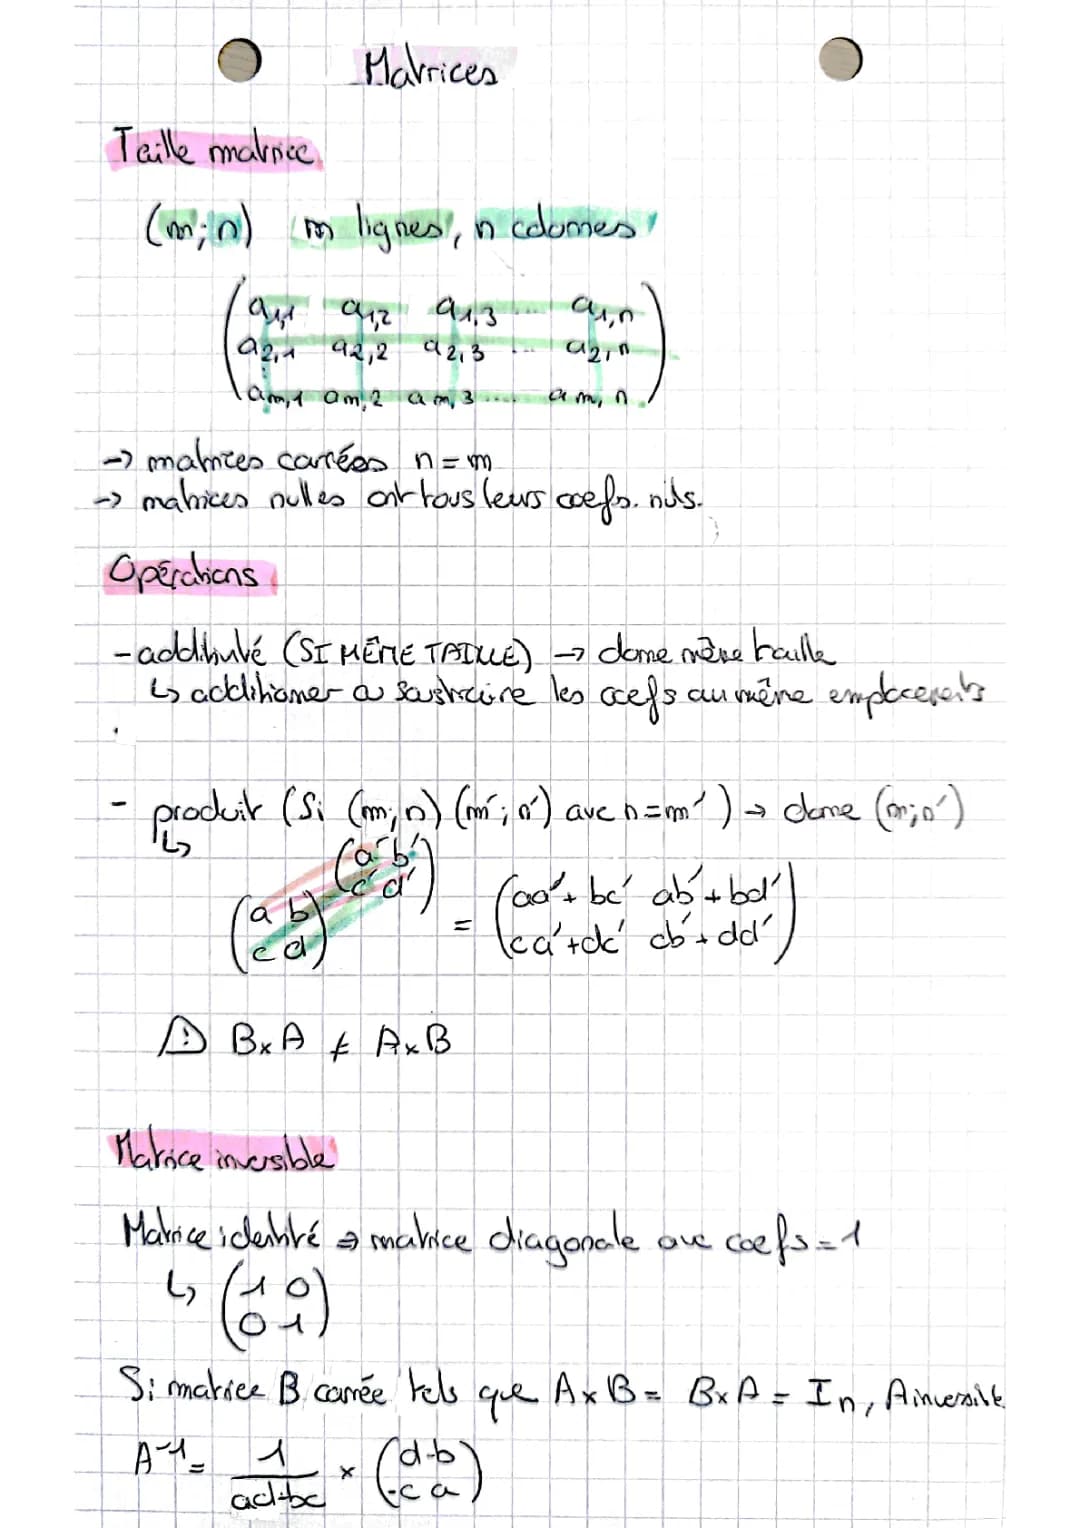 Matrices
Taille matrice
(m;n) m lignes, n colonnes
(a1,1 a1,2 a1,3 .... a1,n)
(a2,1 a2,2 a2,3 ... a2,n)
(am,1 am,2 am,3 .... am,n)
-> matrices carrées n = m
-> matrices nulles ont tous leurs coefs. nuls.
Opérations
- additivité (SI MÊME TAILLE) → donne même taille
↳ additionner ou soustraire les coefs au même emplacements
- produit (Si (m;n) (m';n') avec n=m') → donne (m;n')
↳ (a' b')
(c' d')
(a b) = (aa'+bc' ab'+bd')
(c d) (ca'+dc' cb'+dd')
⚠ B×A ≠ A×B
Matrice inversible
Matrice identité → matrice diagonale avec coefs = 1
↳ (1 0)
(0 1)
Si matrice B carrée tels que A×B = B×A = In, A inversible
A⁻¹ = 1/(ad-bc) × (d -b)
(-c a)